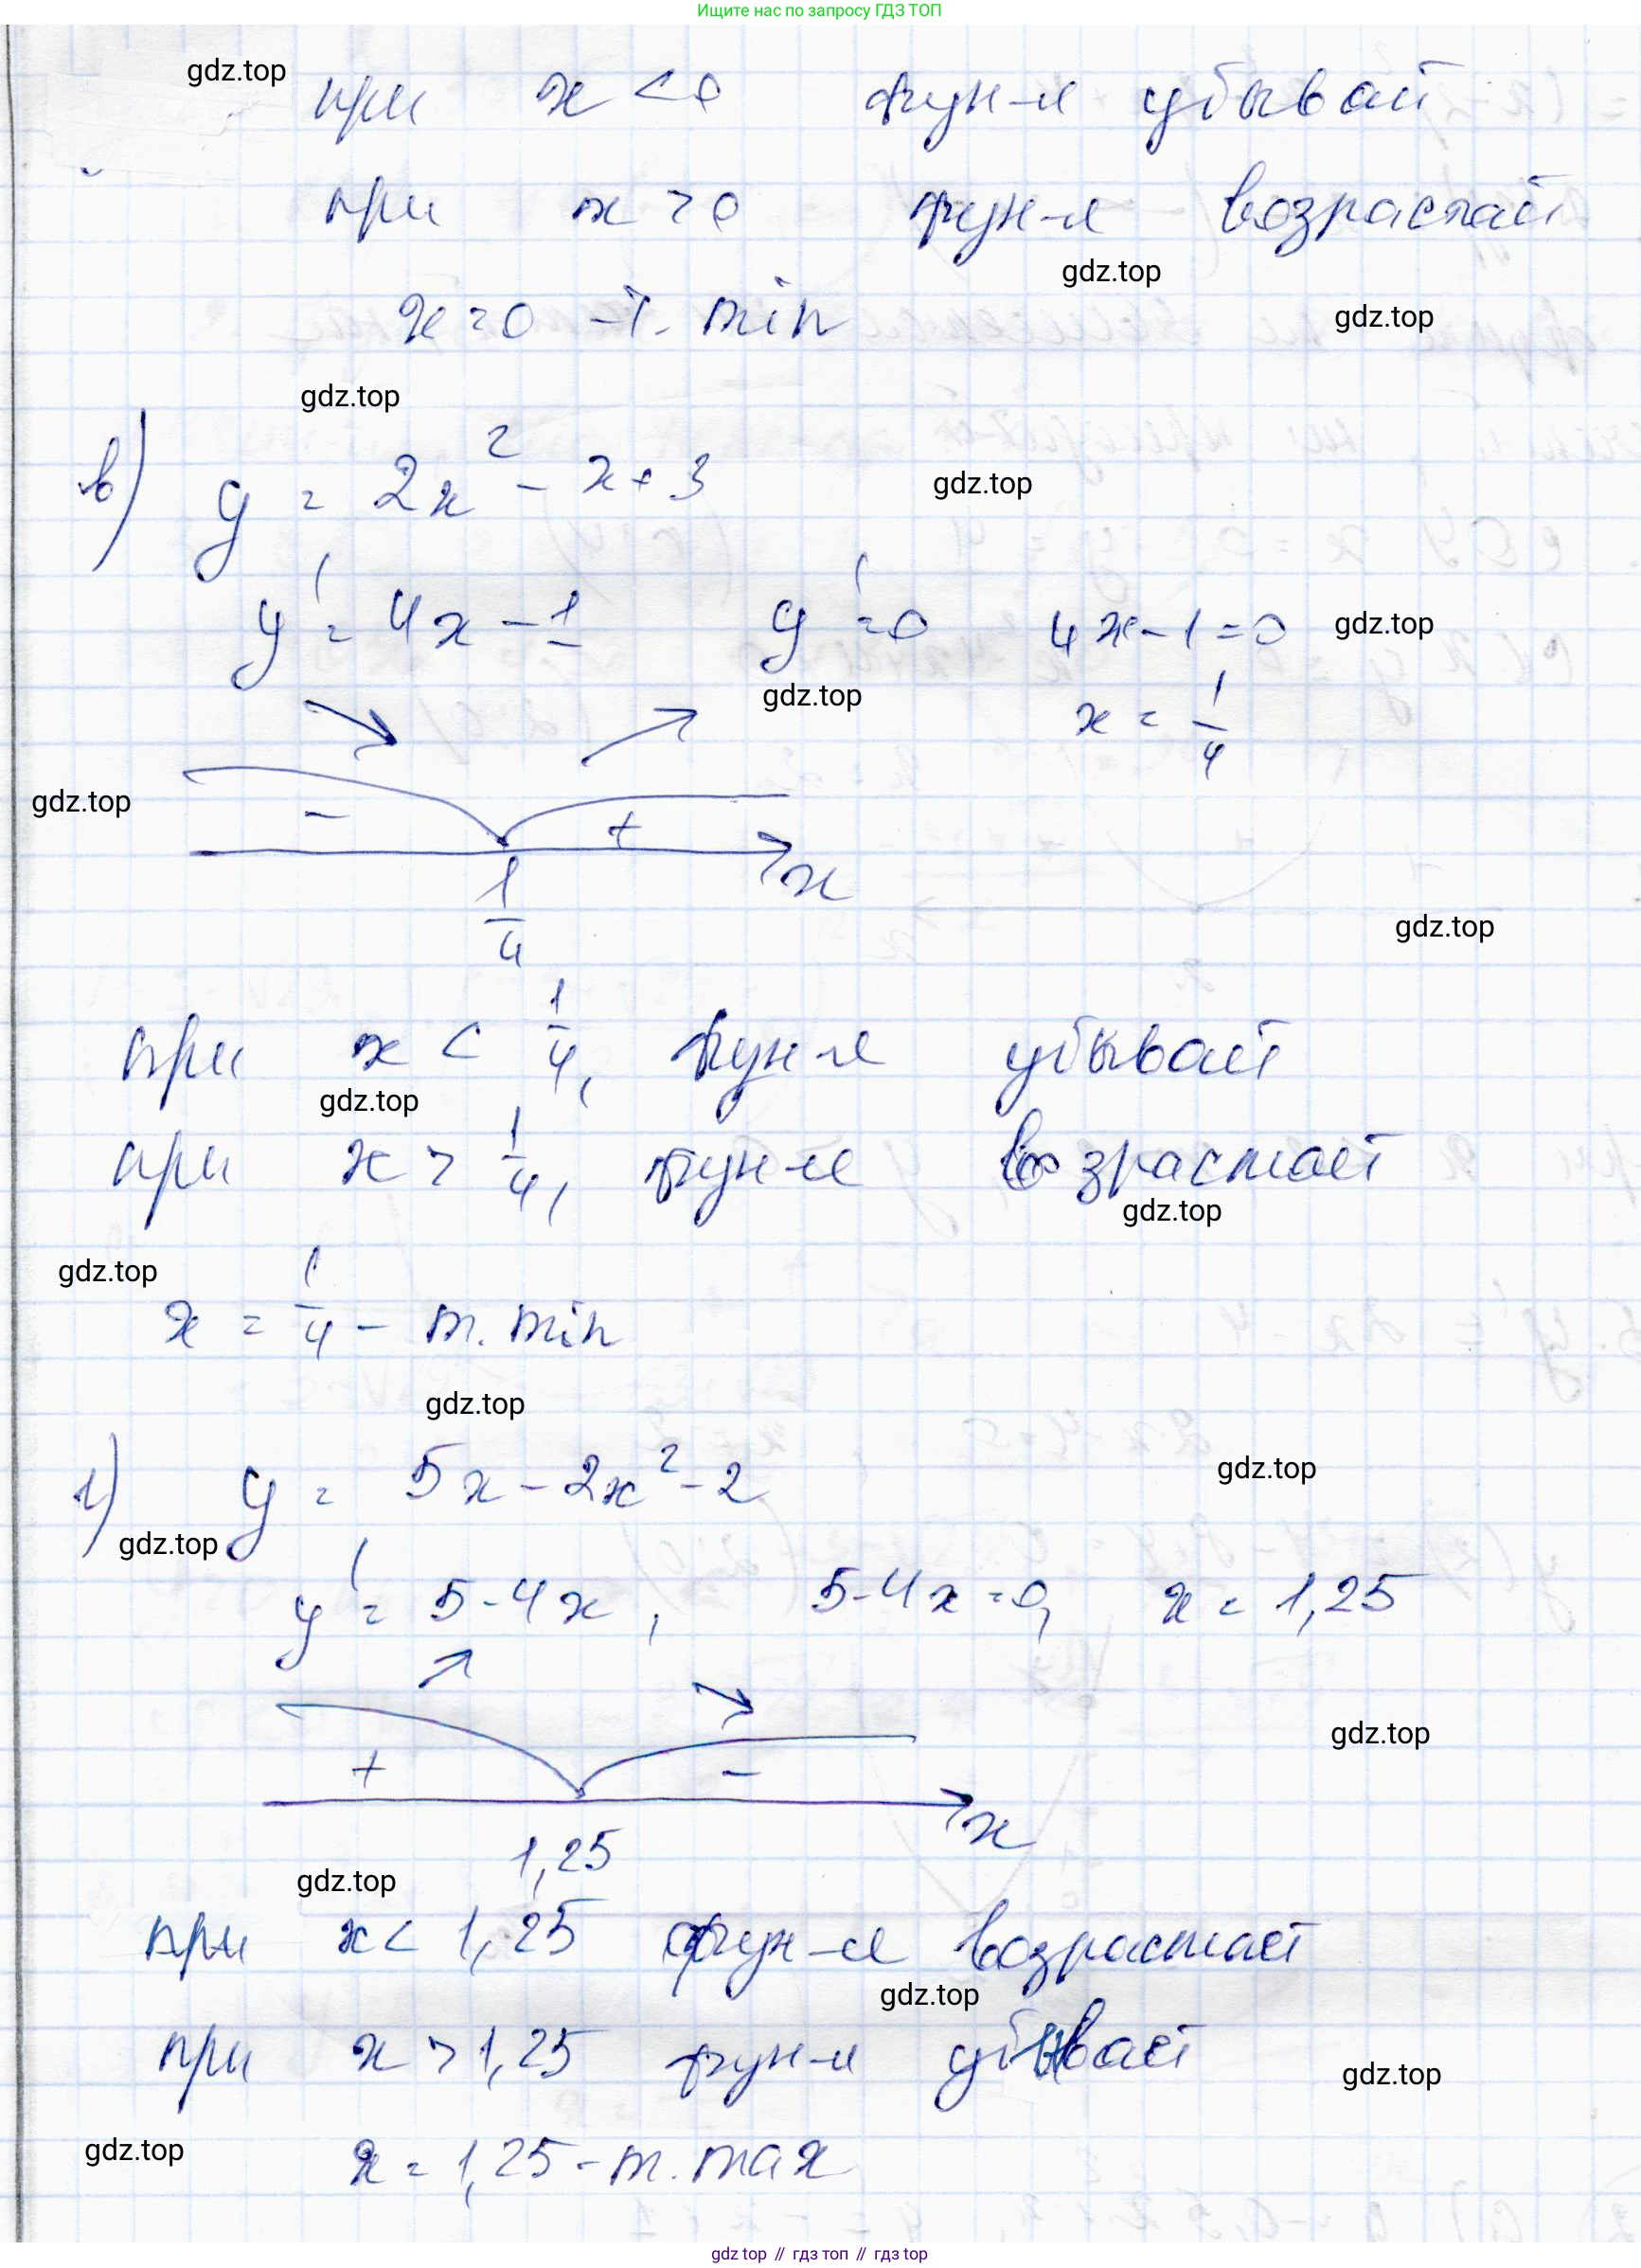 Ищите нас по запросу ГДЗ ТОП
gdz.top
при x < 0 фун-я убывает
при x > 0 фун-я возрастает
gdz.top
x = 0 - т. min gdz.top
gdz.top
в) y = 2x² - x + 3 gdz.top
y' = 4x - 1 y' = 0 4x - 1 = 0 gdz.top
gdz.top x = 1/4
gdz.top - +
x
1/4
gdz.top
при x < 1/4, фун-я убывает
gdz.top
при x > 1/4, фун-я возрастает
gdz.top
gdz.top
x = 1/4 - т. min
gdz.top
г) y = 5x - 2x² - 2 gdz.top
gdz.top
y' = 5 - 4x, 5 - 4x = 0, x = 1,25
gdz.top
+ -
x
1,25
gdz.top
при x < 1,25 фун-я возрастает
gdz.top
при x > 1,25 фун-я убывает
gdz.top
gdz.top x = 1,25 - т. max
gdz top // гдз топ // гдз top